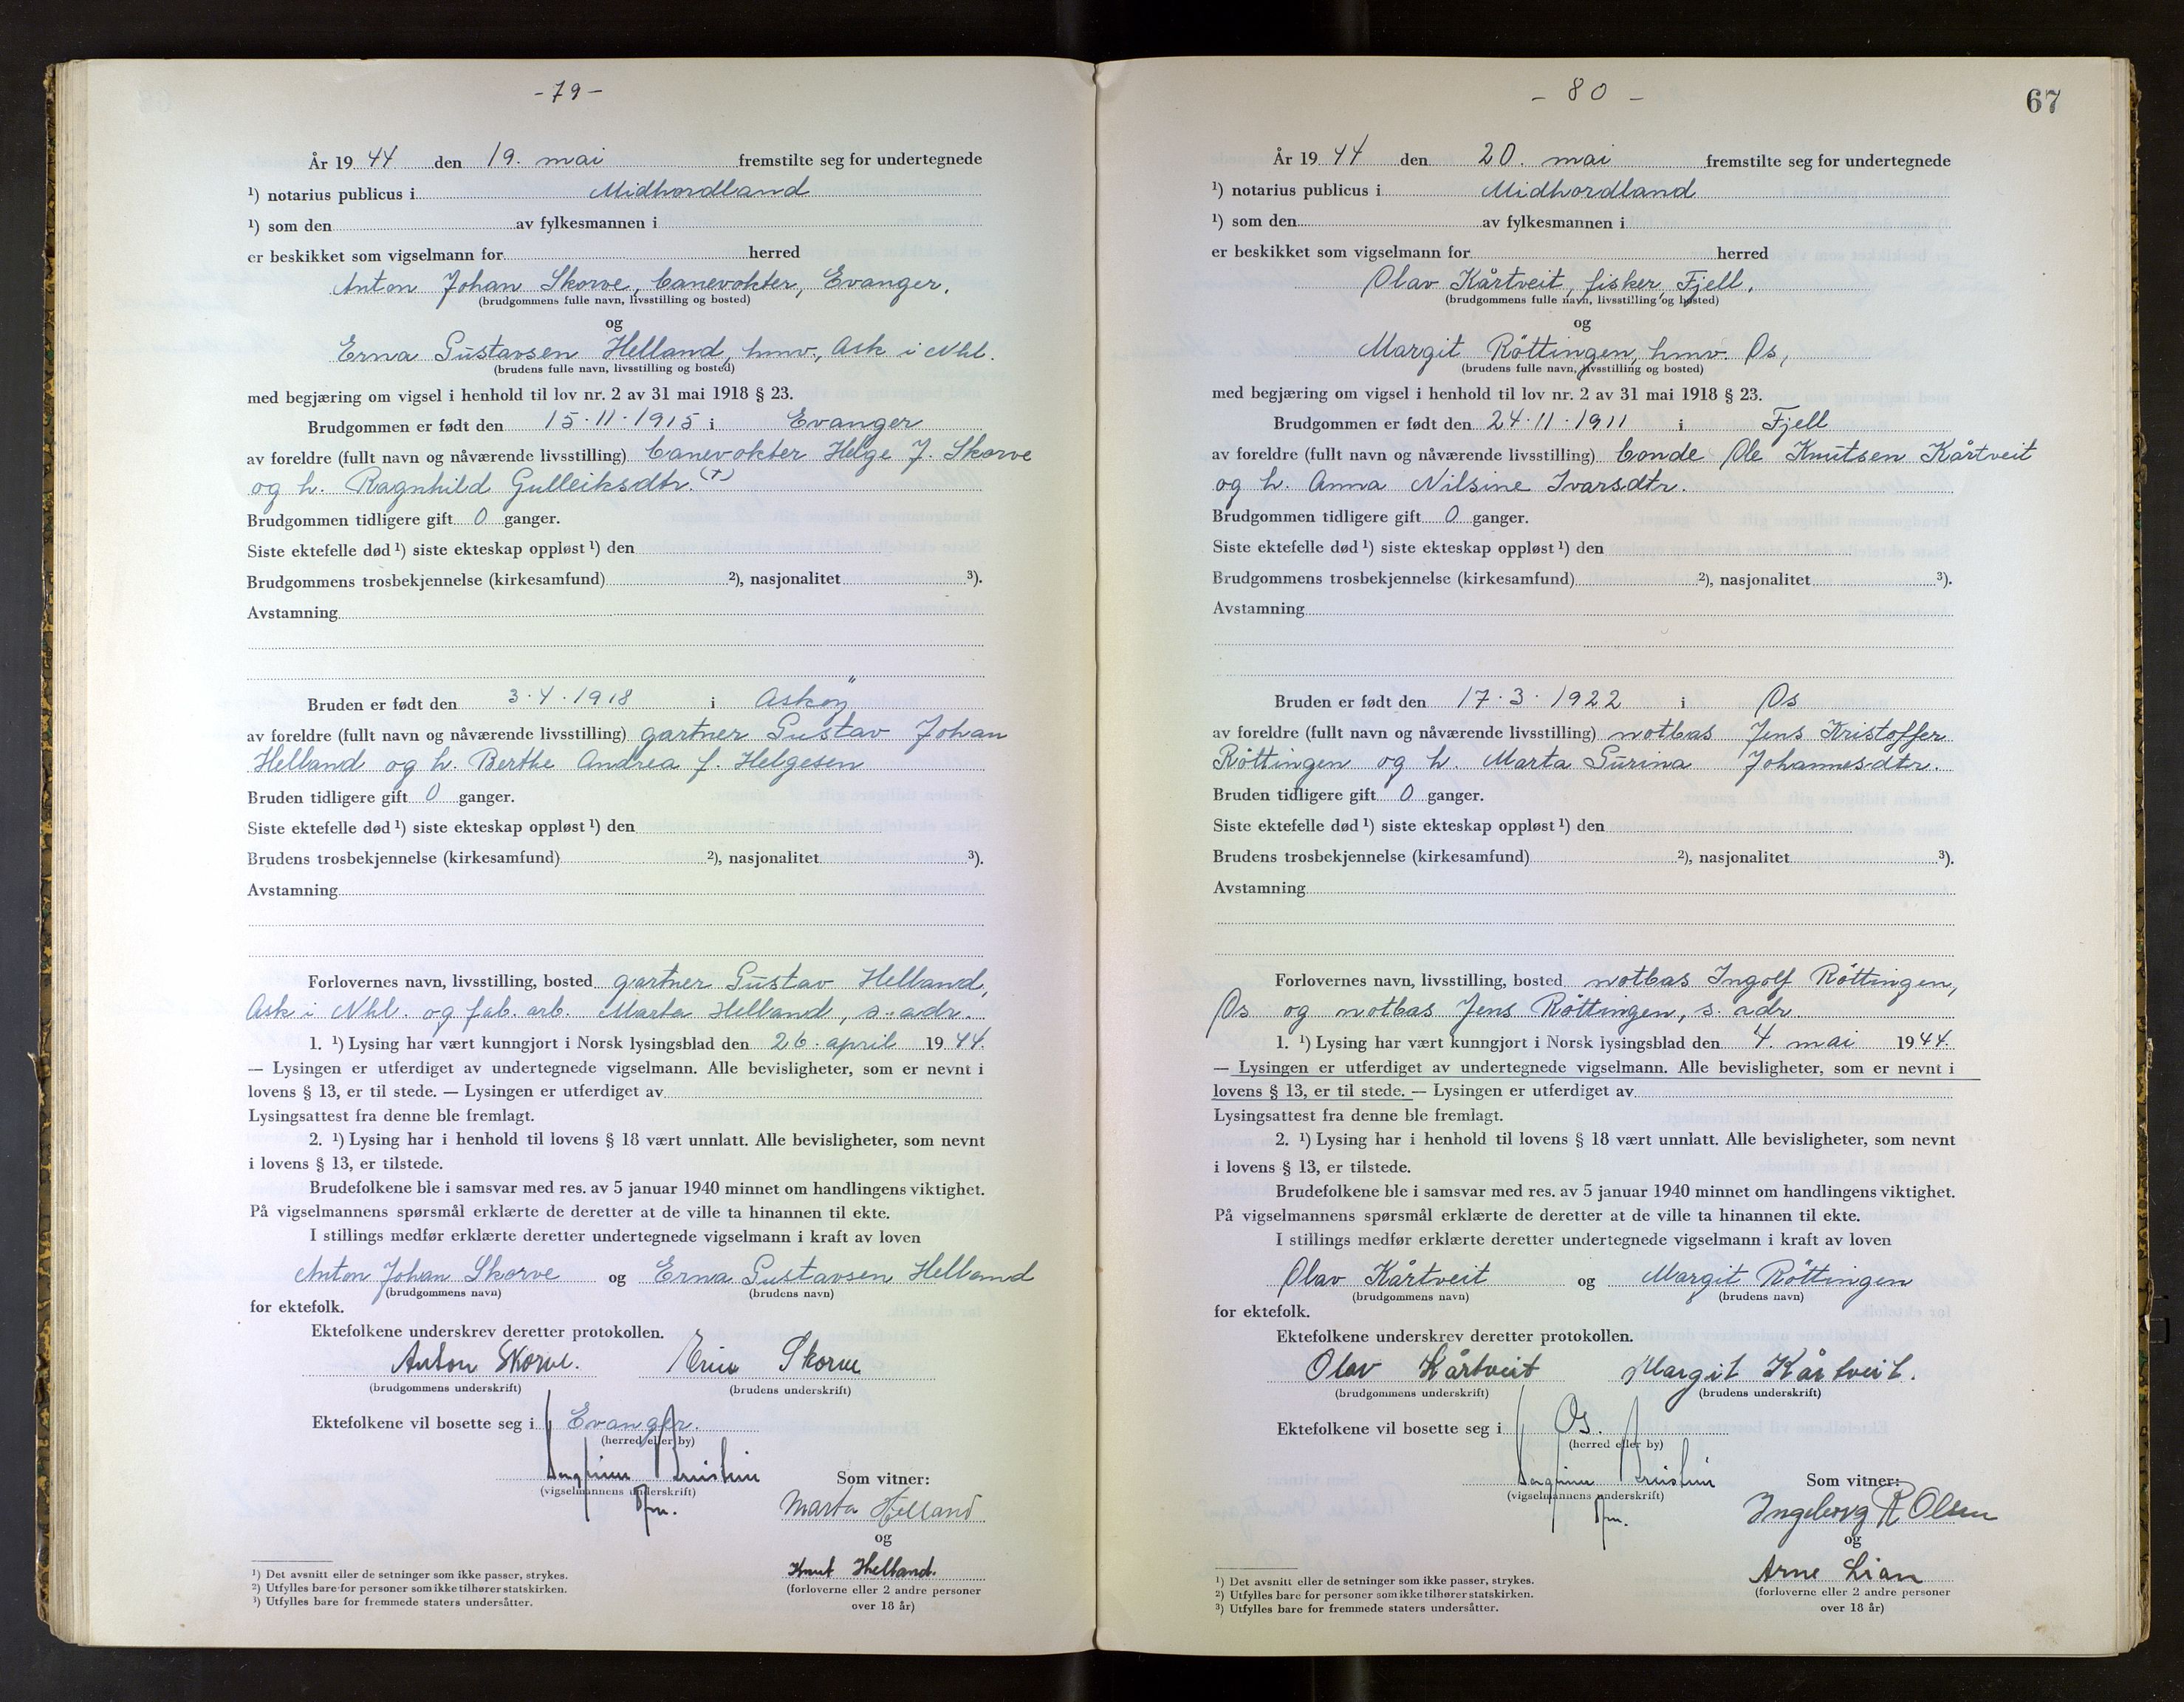 - 79 -
År 19 44 den 19. mai fremstilte seg for undertegnede
¹) notarius publicus i Midhordland
¹) som den av fylkesmannen i
er beskikket som vigselmann for herred
Anton Johan Skorve, banevokter, Evanger.
(brudgommens fulle navn, livsstilling og bosted)
og
Erna Gustavsen Helland, hmv., Ask i Nhl.
(brudens fulle navn, livsstilling og bosted)
med begjæring om vigsel i henhold til lov nr. 2 av 31 mai 1918 § 23.
Brudgommen er født den 15·11·1915 i Evanger
av foreldre (fullt navn og nåværende livsstilling) banevokter Helge J. Skorve
og h. Ragnhild Gulleiksdtr. (†)
Brudgommen tidligere gift 0 ganger.
Siste ektefelle død ¹) siste ekteskap oppløst ¹) den
Brudgommens trosbekjennelse (kirkesamfund) ²), nasjonalitet ³).
Avstamning
Bruden er født den 3·4·1918 i Asköy
av foreldre (fullt navn og nåværende livsstilling) gartner Gustav Johan
Helland og h. Berthe Andrea f. Helgesen
Bruden tidligere gift 0 ganger.
Siste ektefelle død ¹) siste ekteskap oppløst ¹) den
Brudens trosbekjennelse (kirkesamfund) ²), nasjonalitet ³).
Avstamning
Forlovernes navn, livsstilling, bosted gartner Gustav Helland,
Ask i Nhl. og fab. arb. Marta Helland, s. adr.
1. ¹) Lysing har vært kunngjort i Norsk lysingsblad den 26. april 19 44.
— Lysingen er utferdiget av undertegnede vigselmann. Alle bevisligheter, som er nevnt i
lovens § 13, er til stede. — Lysingen er utferdiget av
Lysingsattest fra denne ble fremlagt.
2. ¹) Lysing har i henhold til lovens § 18 vært unnlatt. Alle bevisligheter, som nevnt
i lovens § 13, er tilstede.
Brudefolkene ble i samsvar med res. av 5 januar 1940 minnet om handlingens viktighet.
På vigselmannens spørsmål erklærte de deretter at de ville ta hinannen til ekte.
I stillings medfør erklærte deretter undertegnede vigselmann i kraft av loven
Anton Johan Skorve og Erna Gustavsen Helland
(brudgommens navn) (brudens navn)
for ektefolk.
Ektefolkene underskrev deretter protokollen.
Anton Skorve. Erna Skorve
(brudgommens underskrift) (brudens underskrift)
Ektefolkene vil bosette seg i Evanger.
(herred eller by)
(vigselmannens underskrift)
Som vitner:
Marta Helland
og
Knut Helland.
(forloverne eller 2 andre personer
over 18 år)
¹) Det avsnitt eller de setninger som ikke passer, strykes.
²) Utfylles bare for personer som ikke tilhører statskirken.
³) Utfylles bare for fremmede staters undersåtter.
- 80 -
67
År 19 44 den 20. mai fremstilte seg for undertegnede
¹) notarius publicus i Midhordland
¹) som den av fylkesmannen i
er beskikket som vigselmann for herred
Olav Kårtveit, fisker, Fjell,
(brudgommens fulle navn, livsstilling og bosted)
og
Margit Röttingen, hmv. Os,
(brudens fulle navn, livsstilling og bosted)
med begjæring om vigsel i henhold til lov nr. 2 av 31 mai 1918 § 23.
Brudgommen er født den 24·11·1911 i Fjell
av foreldre (fullt navn og nåværende livsstilling) bonde Ole Knutsen Kårtveit
og h. Anna Nilsine Ivarsdtr.
Brudgommen tidligere gift 0 ganger.
Siste ektefelle død ¹) siste ekteskap oppløst ¹) den
Brudgommens trosbekjennelse (kirkesamfund) ²), nasjonalitet ³).
Avstamning
Bruden er født den 17·3·1922 i Os
av foreldre (fullt navn og nåværende livsstilling) notbas Jens Kristoffer
Röttingen og h. Marta Gurina Johannesdtr.
Bruden tidligere gift 0 ganger.
Siste ektefelle død ¹) siste ekteskap oppløst ¹) den
Brudens trosbekjennelse (kirkesamfund) ²), nasjonalitet ³).
Avstamning
Forlovernes navn, livsstilling, bosted notbas Ingolf Röttingen,
Os og notbas Jens Röttingen, s. adr.
1. ¹) Lysing har vært kunngjort i Norsk lysingsblad den 4. mai 19 44.
— Lysingen er utferdiget av undertegnede vigselmann. Alle bevisligheter, som er nevnt i
lovens § 13, er til stede. — Lysingen er utferdiget av
Lysingsattest fra denne ble fremlagt.
2. ¹) Lysing har i henhold til lovens § 18 vært unnlatt. Alle bevisligheter, som nevnt
i lovens § 13, er tilstede.
Brudefolkene ble i samsvar med res. av 5 januar 1940 minnet om handlingens viktighet.
På vigselmannens spørsmål erklærte de deretter at de ville ta hinannen til ekte.
I stillings medfør erklærte deretter undertegnede vigselmann i kraft av loven
Olav Kårtveit og Margit Röttingen
(brudgommens navn) (brudens navn)
for ektefolk.
Ektefolkene underskrev deretter protokollen.
Olav Kårtveit Margit Kårtveit.
(brudgommens underskrift) (brudens underskrift)
Ektefolkene vil bosette seg i Os.
(herred eller by)
(vigselmannens underskrift)
Som vitner:
Ingeborg R Olsen
og
Arne Lian
(forloverne eller 2 andre personer
over 18 år)
¹) Det avsnitt eller de setninger som ikke passer, strykes.
²) Utfylles bare for personer som ikke tilhører statskirken.
³) Utfylles bare for fremmede staters undersåtter.